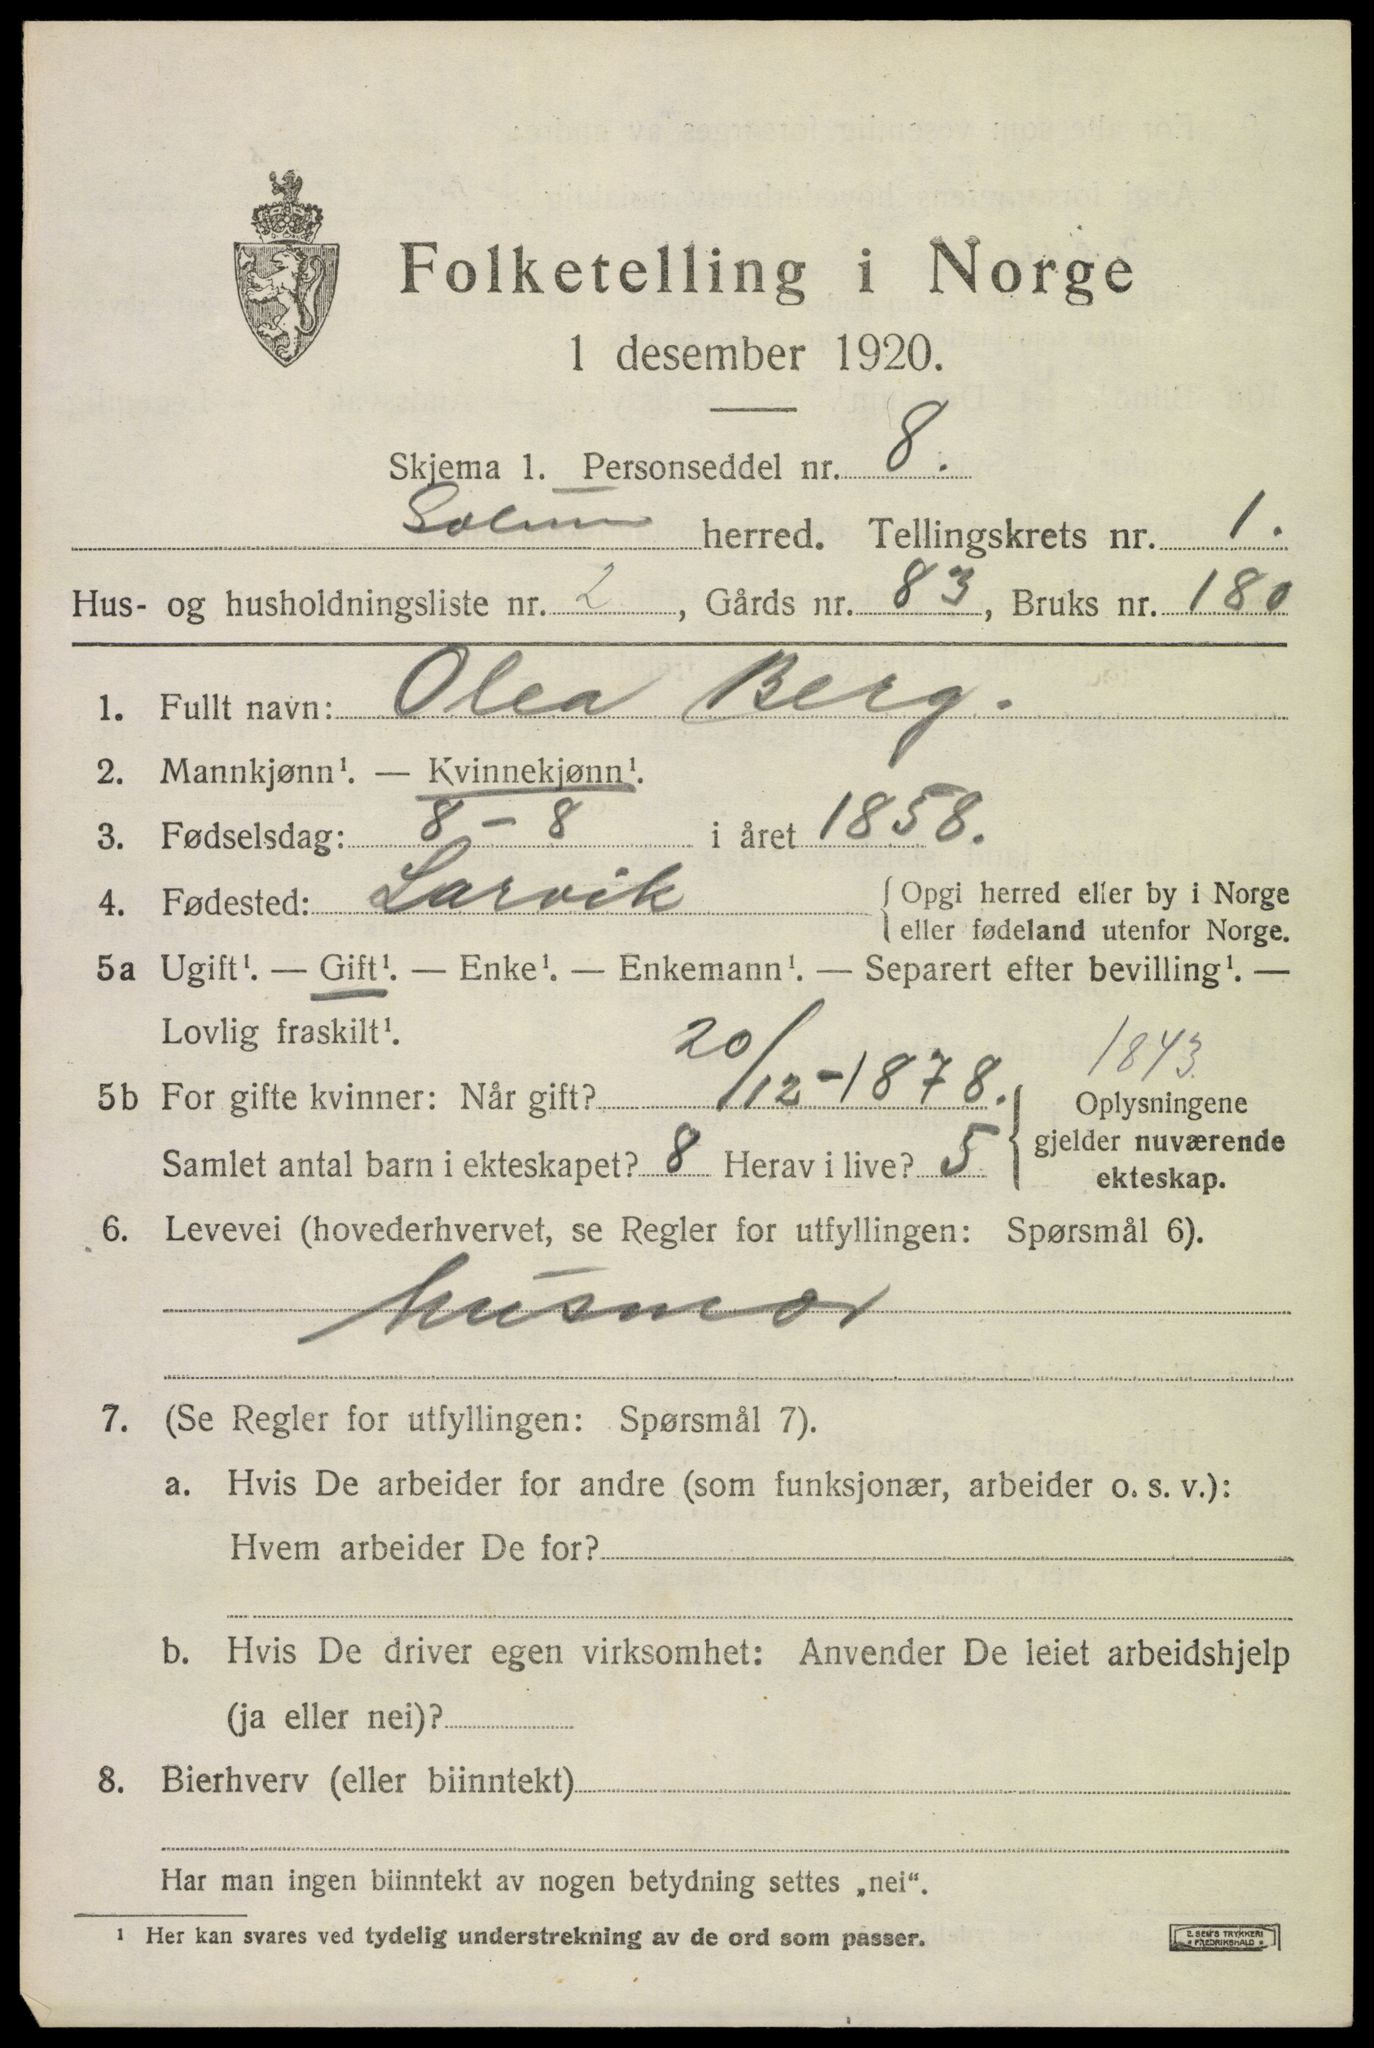 Folketelling i Norge
1 desember 1920.
Skjema 1. Personseddel nr. 8.
Solum herred. Tellingskrets nr. 1.
Hus- og husholdningsliste nr. 2, Gårds nr. 83, Bruks nr. 180
1. Fullt navn: Olea Berg.
2. Mannkjønn¹. — Kvinnekjønn¹.
3. Fødselsdag: 8 – 8 i året 1858.
4. Fødested: Larvik { Opgi herred eller by i Norge
eller fødeland utenfor Norge.
5a Ugift¹. — Gift¹. — Enke¹. — Enkemann¹. — Separert efter bevilling¹. —
Lovlig fraskilt¹.
1843.
5b For gifte kvinner: Når gift? 20/12-1878. { Oplysningene
gjelder nuværende
Samlet antal barn i ekteskapet? 8 Herav i live? 5
ekteskap.
6. Levevei (hovederhvervet, se Regler for utfyllingen: Spørsmål 6).
husmor
7. (Se Regler for utfyllingen: Spørsmål 7).
a. Hvis De arbeider for andre (som funksjonær, arbeider o. s. v.):
Hvem arbeider De for?
b. Hvis De driver egen virksomhet: Anvender De leiet arbeidshjelp
(ja eller nei)?
8. Bierhverv (eller biinntekt)
Har man ingen biinntekt av nogen betydning settes „nei“.
¹ Her kan svares ved tydelig understrekning av de ord som passer.
E. SEM'S TRYKKERI
FREDRIKSHALD